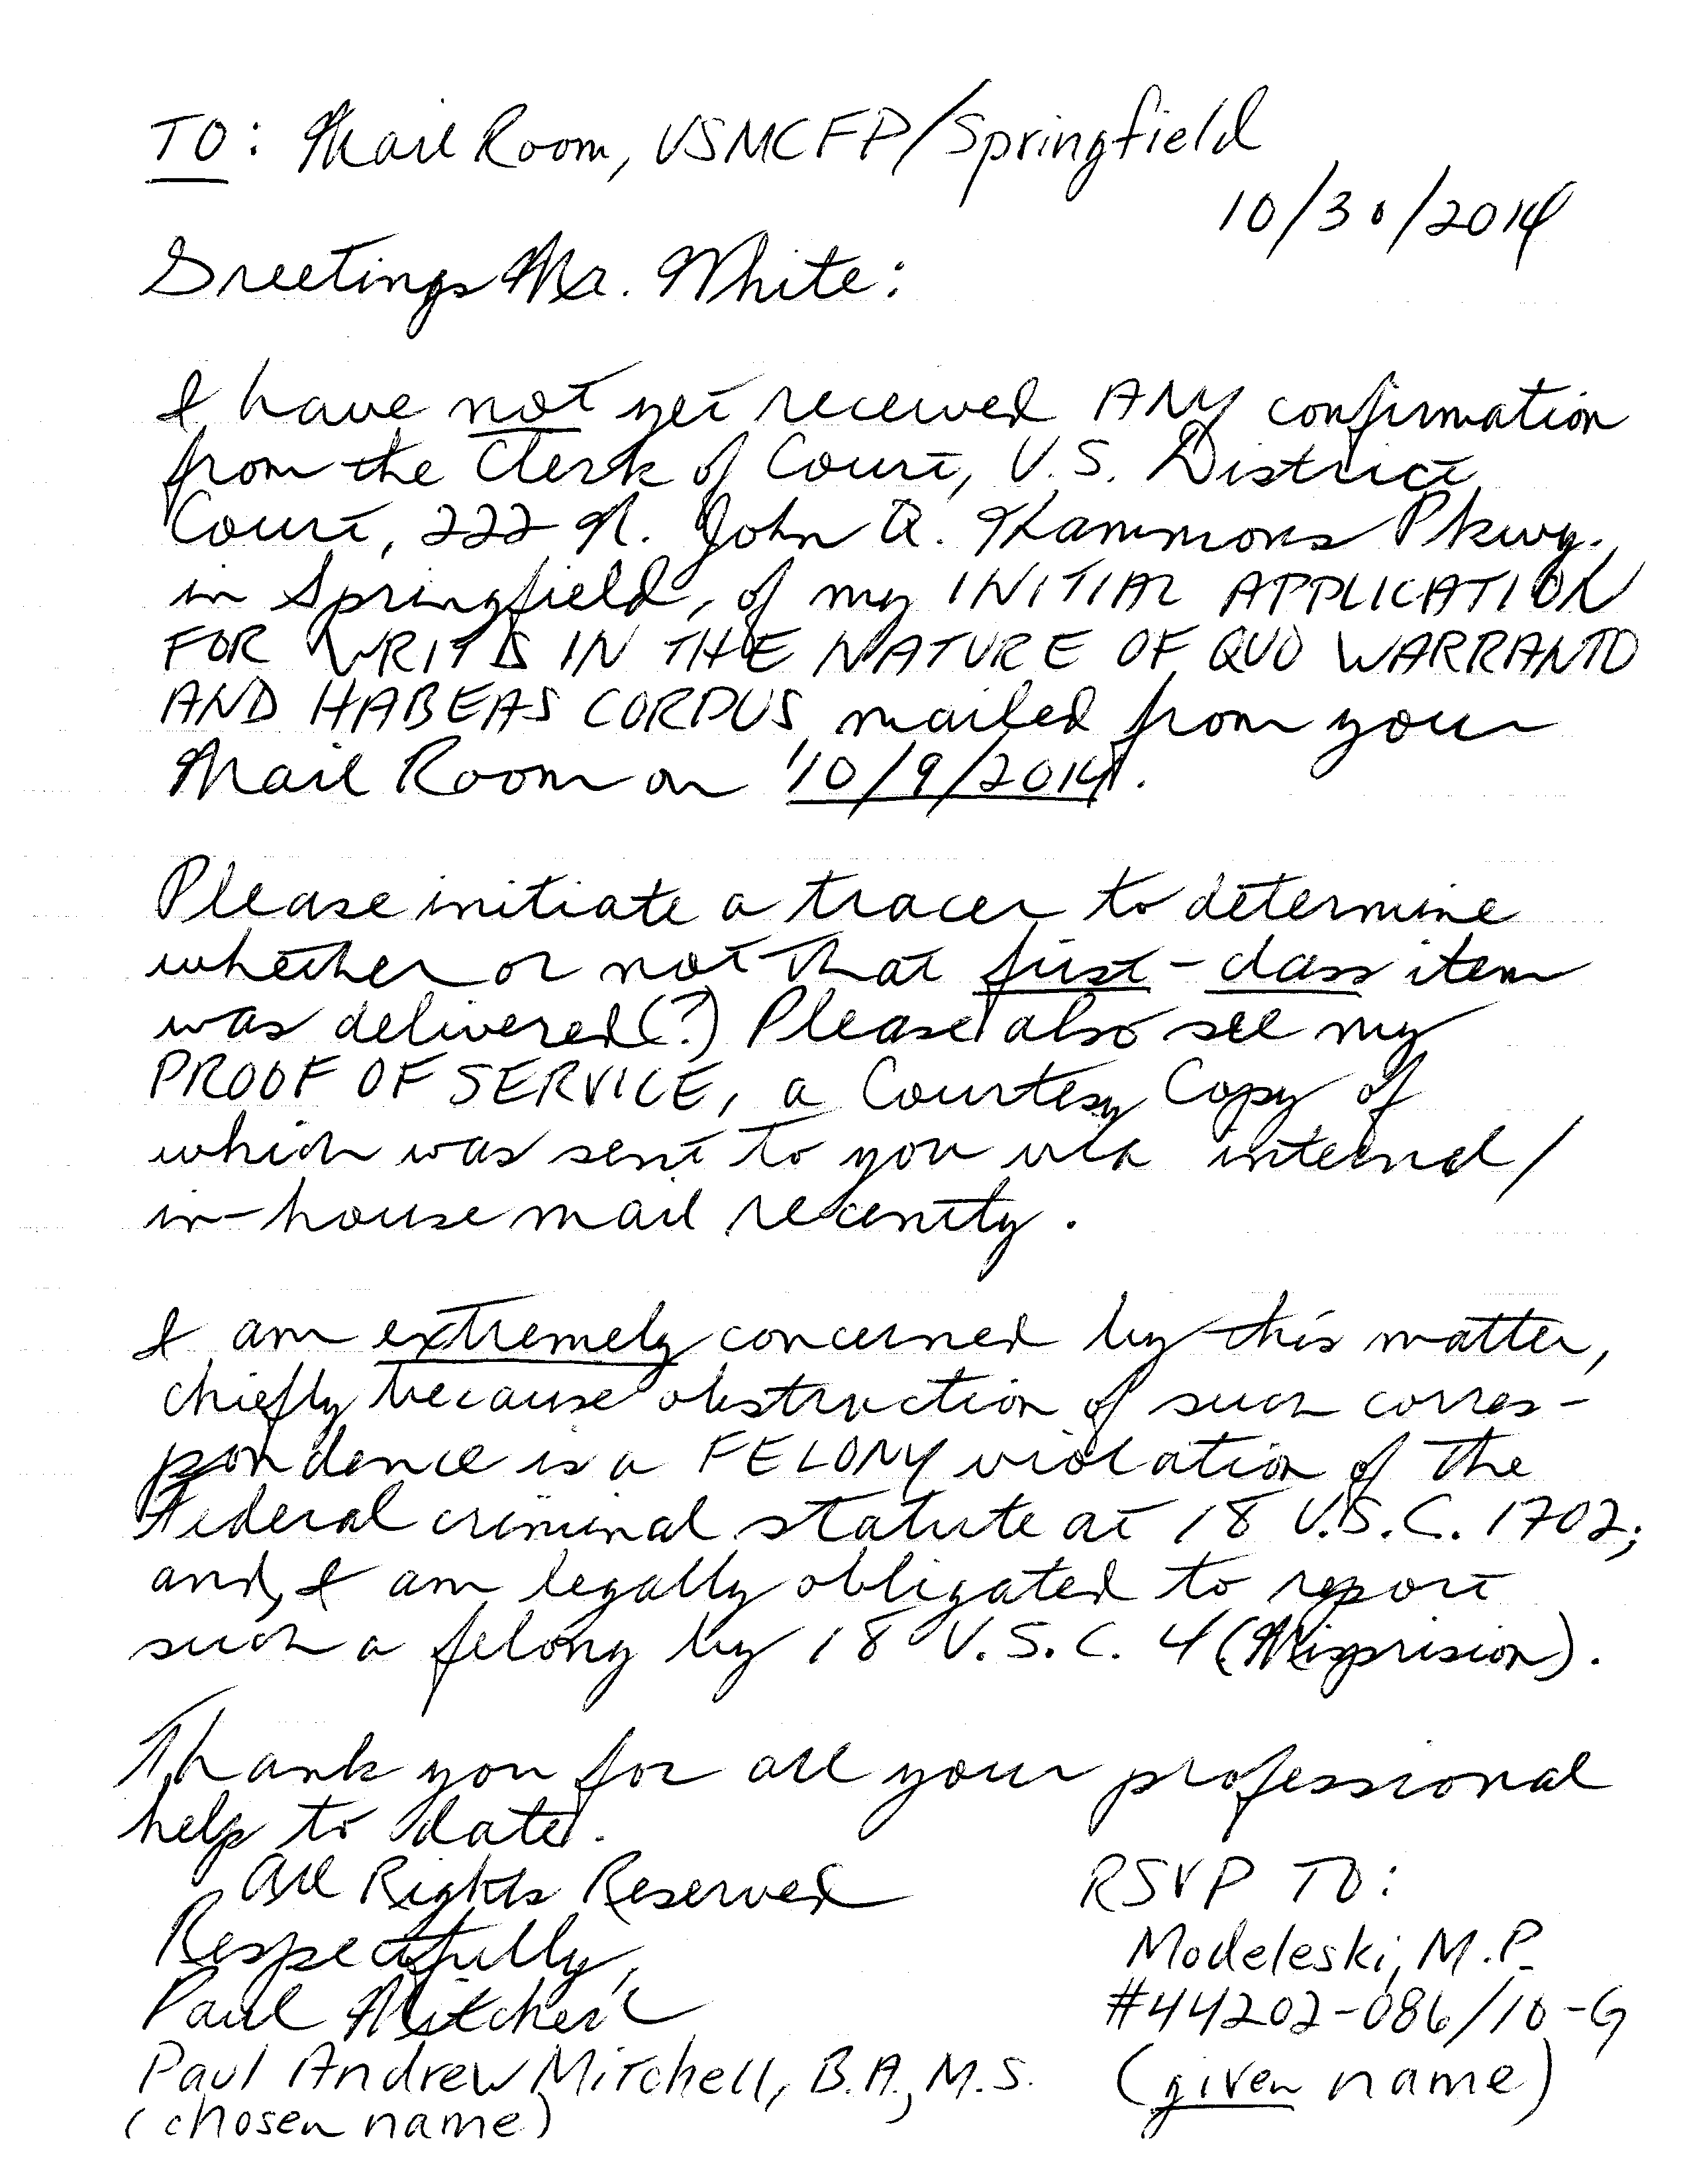 TO: Mail Room, USMCFP/Springfield
10/30/2014
Greetings Mr. White:
I have not yet received ANY confirmation
from the Clerk of Court, U.S. District
Court, 222 N. John Q. Hammons Pkwy.
in Springfield, of my INITIAL APPLICATION
FOR WRITS IN THE NATURE OF QUO WARRANTO
AND HABEAS CORPUS mailed from your
Mail Room on 10/9/2014.
Please initiate a tracer to determine
whether or not that first-class item
was delivered(?) Please also see my
PROOF OF SERVICE, a Courtesy Copy of
which was sent to you via internal/
in-house mail recently.
I am extremely concerned by this matter,
chiefly because obstruction of such corres-
pondence is a FELONY violation of the
Federal criminal statute at 18 U.S.C. 1702;
and, I am legally obligated to report
such a felony by 18 U.S.C. 4 (Misprision).
Thank you for all your professional
help to date.
All Rights Reserved
Respectfully,
Paul Mitchell
Paul Andrew Mitchell, B.A., M.S.
(chosen name)
RSVP TO:
Modeleski, M.P.
#44202-086/10-G
(given name)